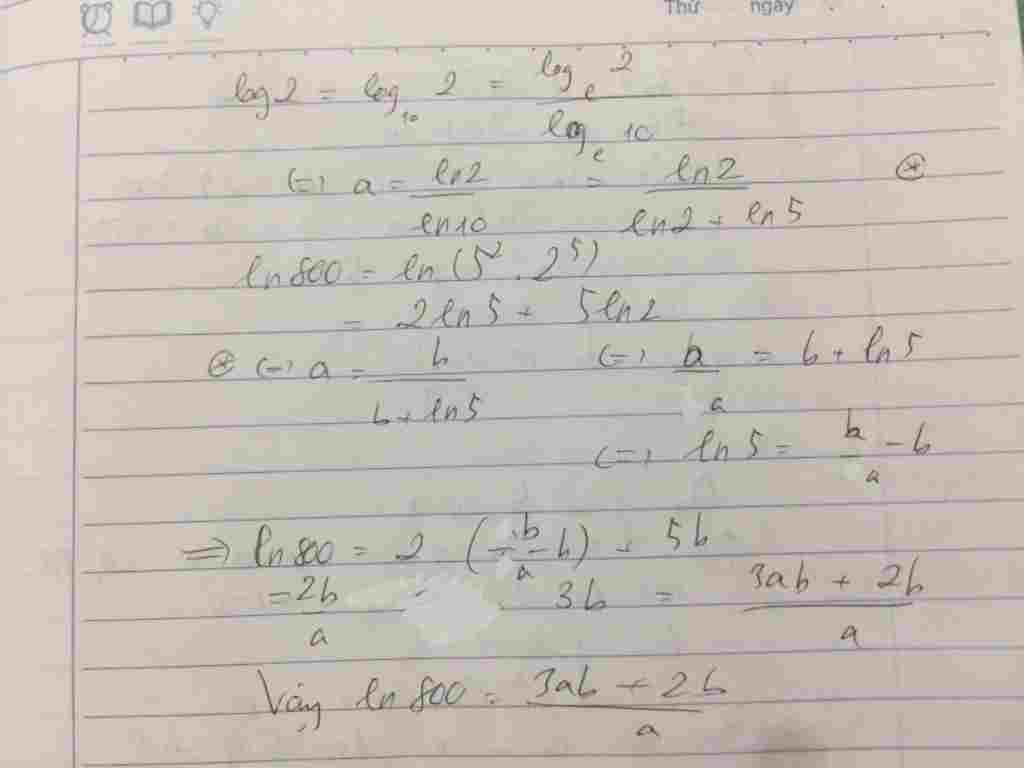 Thứ ngày
log 2 = log₁₀ 2 = logₑ 2 / logₑ 10
(=) a = ln2 / ln10 = ln2 / (ln2 + ln5) ⊛
ln 800 = ln (5² . 2⁵)
= 2ln5 + 5ln2
⊛ (=) a = b / (b + ln5) (=) b / a = b + ln5
(=) ln5 = b / a - b
=> ln 800 = 2 (b / a - b) + 5b
= 2b / a + 3b = (3ab + 2b) / a
Vậy ln 800 = (3ab + 2b) / a